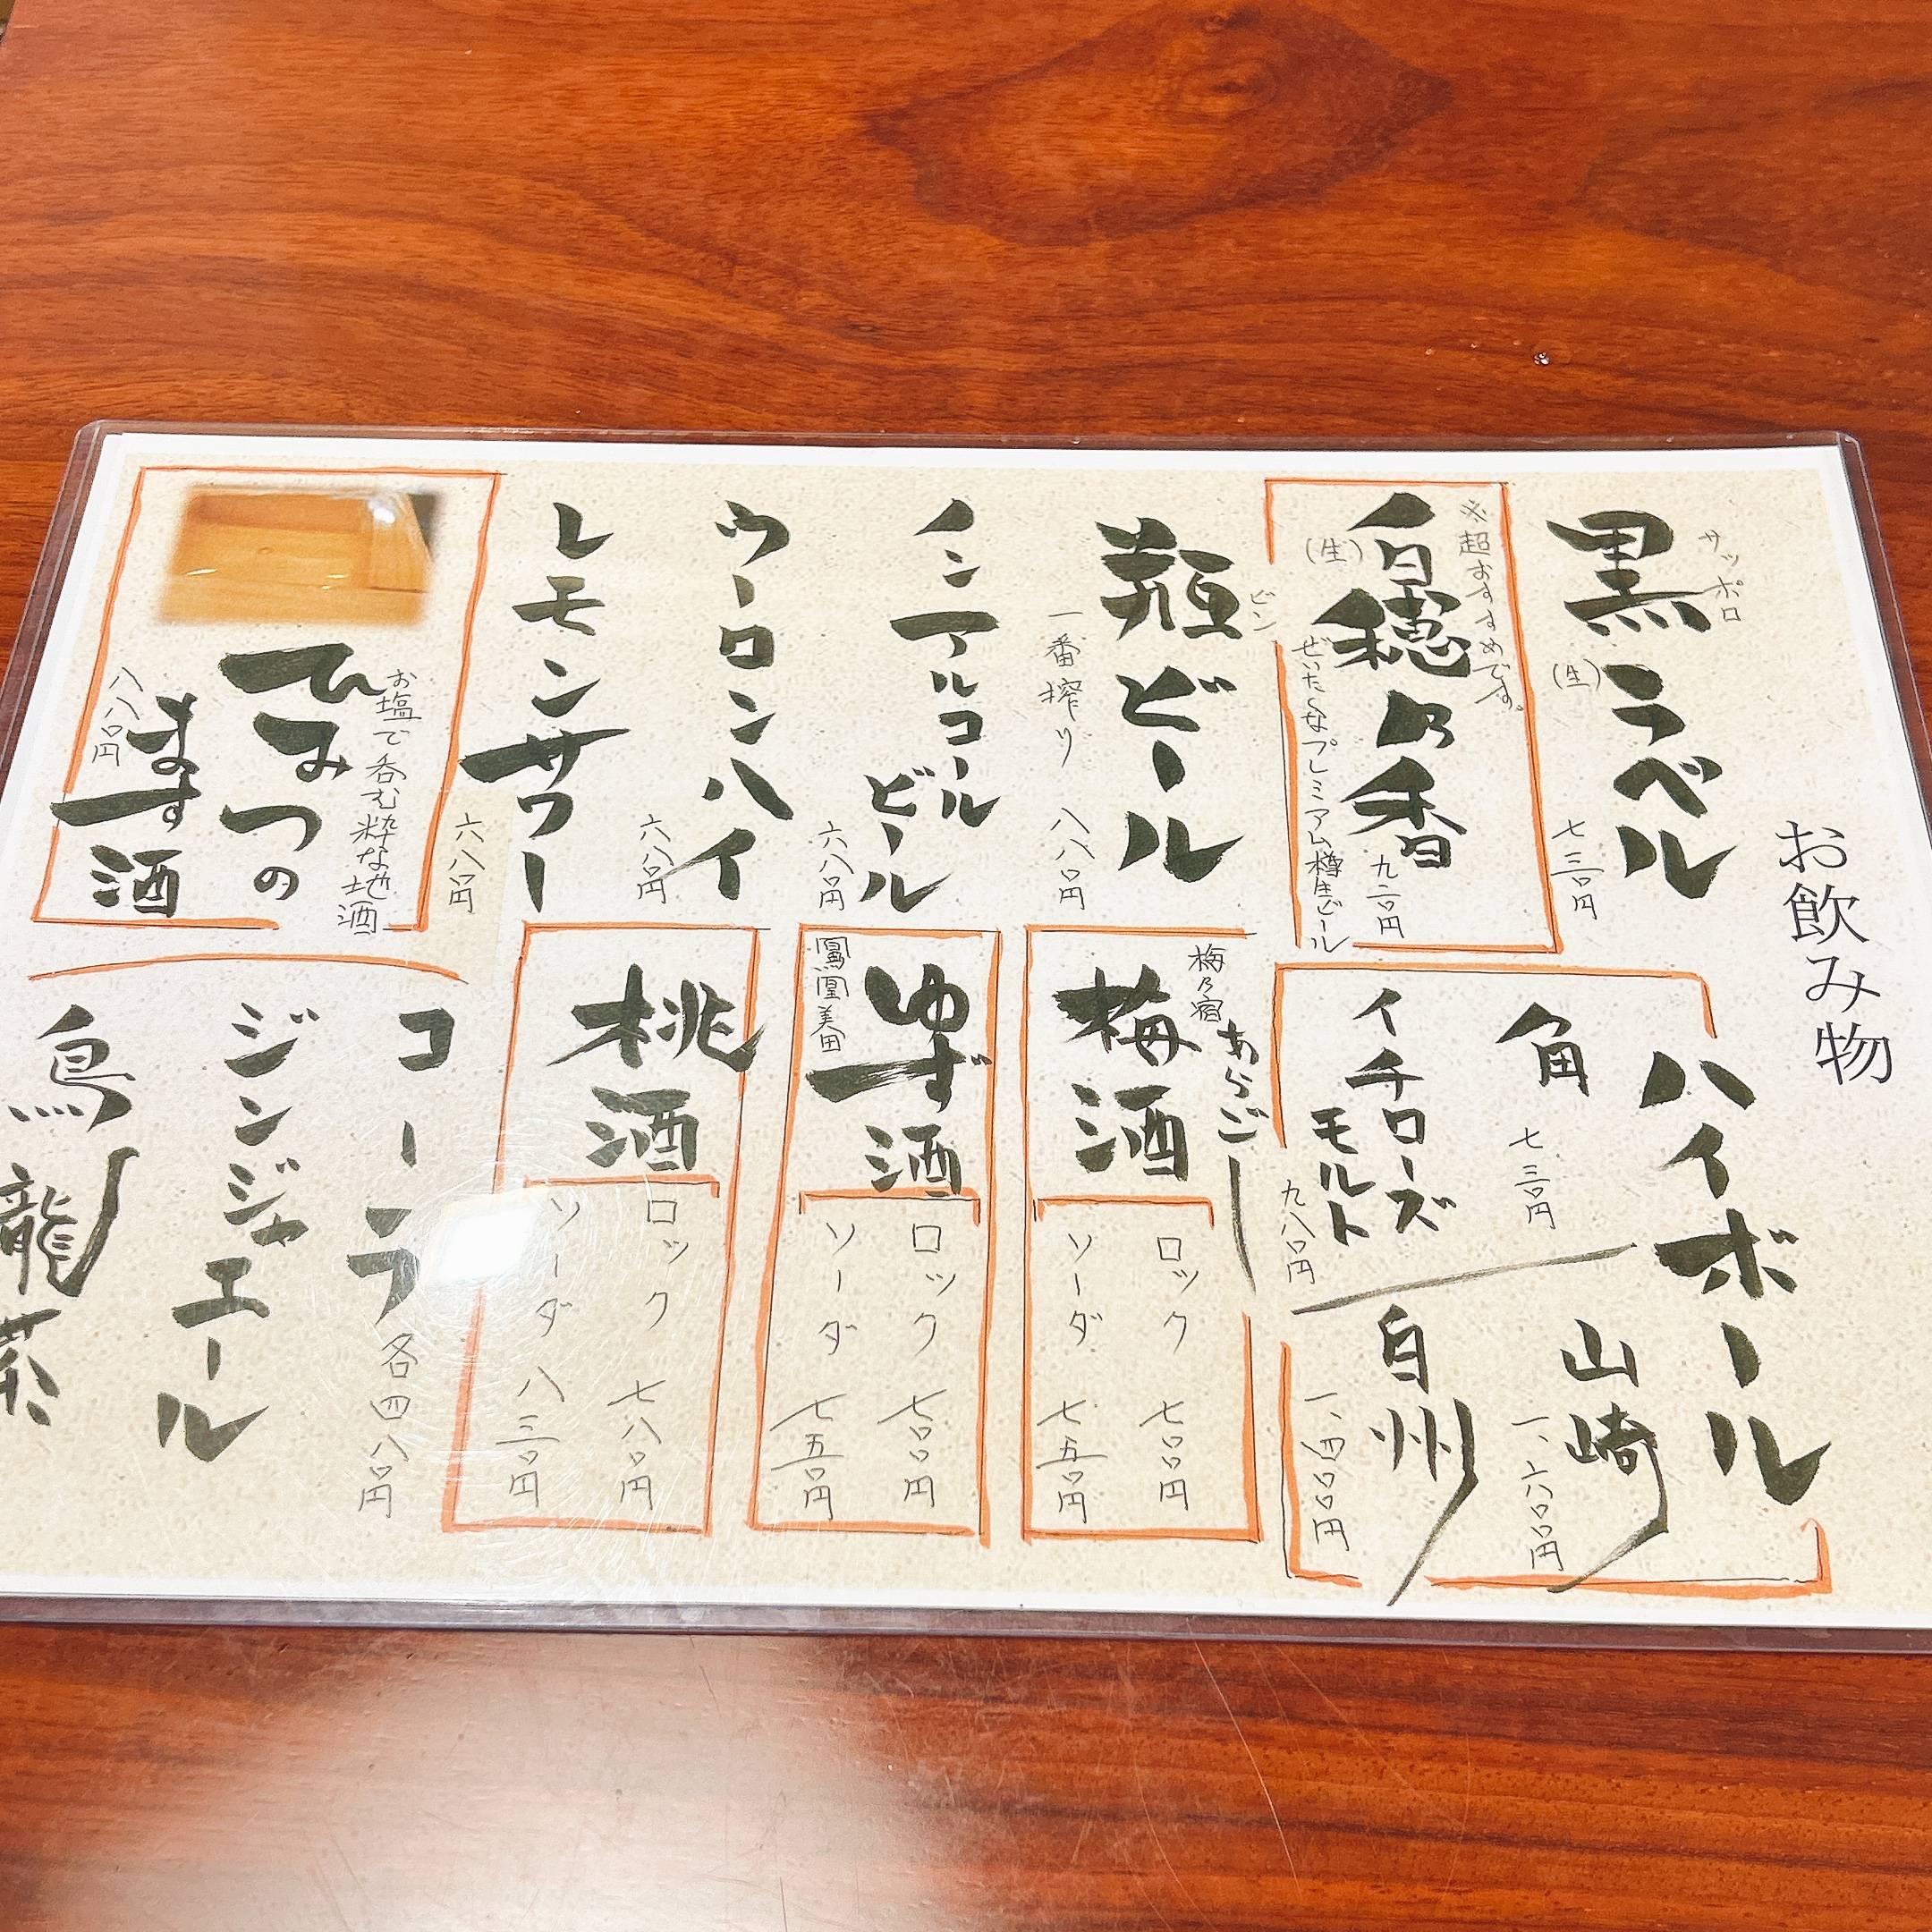 お飲み物
サッポロ
黒ラベル
(生)
七三〇円
※超おすすめです。
白穂乃香
(生)
九二〇円
ぜいたくなプレミアム樽生ビール
ビン
瓶ビール
一番搾り 八八〇円
ノンアルコール
ビール
六八〇円
ウーロンハイ
六八〇円
レモンサワー
六八〇円
お塩で呑む粋な地酒
ひまつの
ます酒
八八〇円
ハイボール
角
七三〇円
イチローズ
モルト
九八〇円
山崎
一、六〇〇円
白州
一、四〇〇円
梅乃宿
あらごし
梅酒
ロック 七〇〇円
ソーダ 七五〇円
ゆず酒
鳳凰美田
ロック 七〇〇円
ソーダ 七五〇円
桃酒
ロック 七八〇円
ソーダ 八三〇円
コーラ
各四八〇円
ジンジャエール
烏龍茶